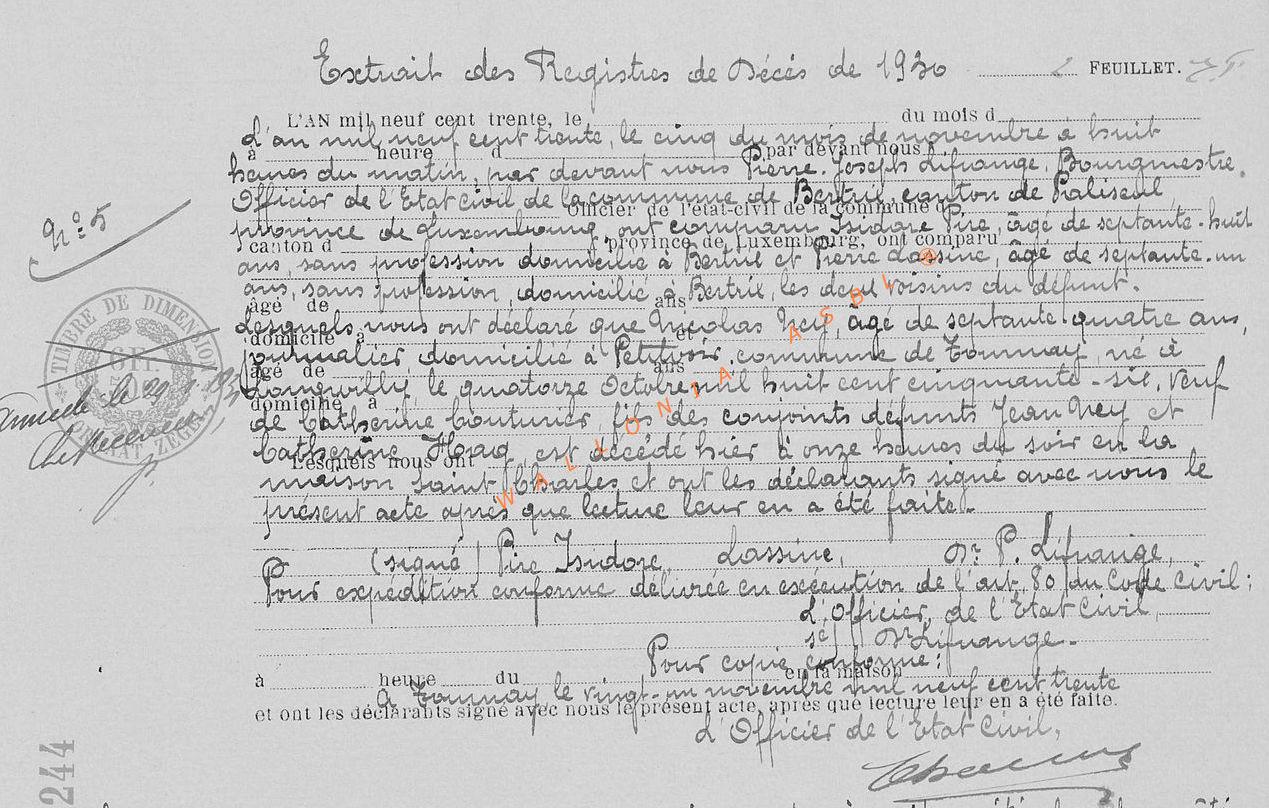 Extrait des Registres de Décès de 1930 2 FEUILLET.
L'AN mil neuf cent trente, le du mois d
L'an mil neuf cent trente, le cinq du mois de novembre à huit
à heure d par devant nous
heures du matin, par devant nous Pierre-Joseph Lifrange, Bourgmestre,
Officier de l'Etat Civil de la commune de Bertrix, canton de Paliseul,
Officier de l'état-civil de la commune d
province de Luxembourg, ont comparu Isidore Pire, âgé de septante-huit
canton d , province de Luxembourg, ont comparu
N° 5
ans, sans profession domicilié à Bertrix et Pierre Lassine, âgé de septante-un
ans, sans profession, domicilié à Bertrix, les deux voisins du défunt.
âgé de ans
Lesquels nous ont déclaré que Nicolas Ney, âgé de septante quatre ans,
domicilié à et
journalier domicilié à Petitvoir, commune de Tournay, né à
âgé de ans
Longvilly le quatorze Octobre mil huit cent cinquante-six, veuf
domicilié à
de Catherine Couturier, fils des conjoints défunts Jean Ney et
Catherine Haag, est décédé hier à onze heures du soir en la
Lesquels nous ont
maison Saint Charles et ont les déclarants signé avec nous le
présent acte après que lecture leur en a été faite.
TIMBRE DE DIMENSION
Annulé le 29
Le receveur
WALLONIA ASBL
(signé) Pire Isidore, Lassine, Dr P. Lifrange,
Pour expédition conforme délivrée en exécution de l'art. 80 du Code Civil;
L'Officier de l'Etat Civil,
sé) Dr Lifrange.
Pour copie conforme:
à heure du en la maison
A Tournay le vingt-un novembre mil neuf cent trente
et ont les déclarants signé avec nous le présent acte, après que lecture leur en a été faite.
L'Officier de l'Etat Civil,
244